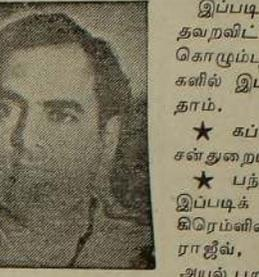 இப்படி
தவறவிட்
கொழும்பு
களில் இப
தாம்.
★ கப்
சன்துறை
★ பந்
இப்படிக்
கிரெம்ளி
ராஜீவ்,
அயல்